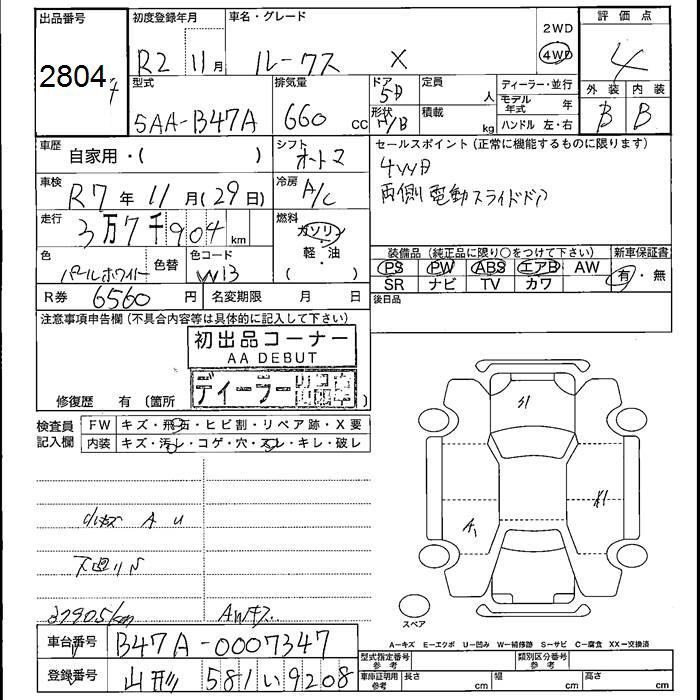 出品番号 初度登録年月 車名・グレード 評価点
2804 R2 11月 ルークス X 2WD 4WD 4
型式 排気量 ドア 5D 定員 人 ディーラー・並行 外装 内装
5AA-B47A 660 cc 形状 H/B 積載 kg モデル年式 年 B B
ハンドル 左・右
車歴 自家用・( ) シフト オートマ セールスポイント(正常に機能するものに限ります)
4WD
車検 R7年 11月(29日) 冷房 A/C 両側電動スライドドア
走行 3万7千904km 燃料 ガソリン 軽・油 ( )
色 パールホワイト 色替 色コード W13 装備品(純正品に限り○をつけて下さい) 新車保証書
PS PW ABS エアB AW 有・無
SR ナビ TV カワ
R券 6560円 名変期限 月 日 後日品
注意事項申告欄(不具合内容等は具体的に記入して下さい)
初出品コーナー
AA DEBUT
ディーラー
修復歴 有(箇所 )
検査員記入欄 FW キズ・飛石・ヒビ割・リペア跡・X要
内装 キズ・汚れ・コゲ・穴・スレ・キレ・破レ
小キズ A U
下廻りS
37905km AWキズ
S1
A1
X1
スペア
A-キズ E-エクボ U-凹み W-補修跡 S-サビ C-腐食 XX-交換済
車台番号 B47A-0007347 型式指定番号 参考 類別区分番号 参考
登録番号 山形 581 い 9208 車庫証明用 参考 長さ cm 幅 cm 高さ cm